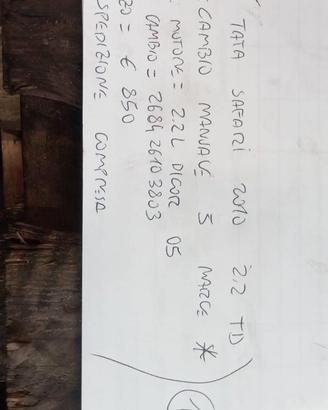 TATA SAFARI 2010 2.2 TD
CAMBIO MANUALE 5 MARCE *
MOTORE = 2.2L DICOR 05
CAMBIO = 268426103803
ZO = € 850
SPEDIZIONE COMPRESA